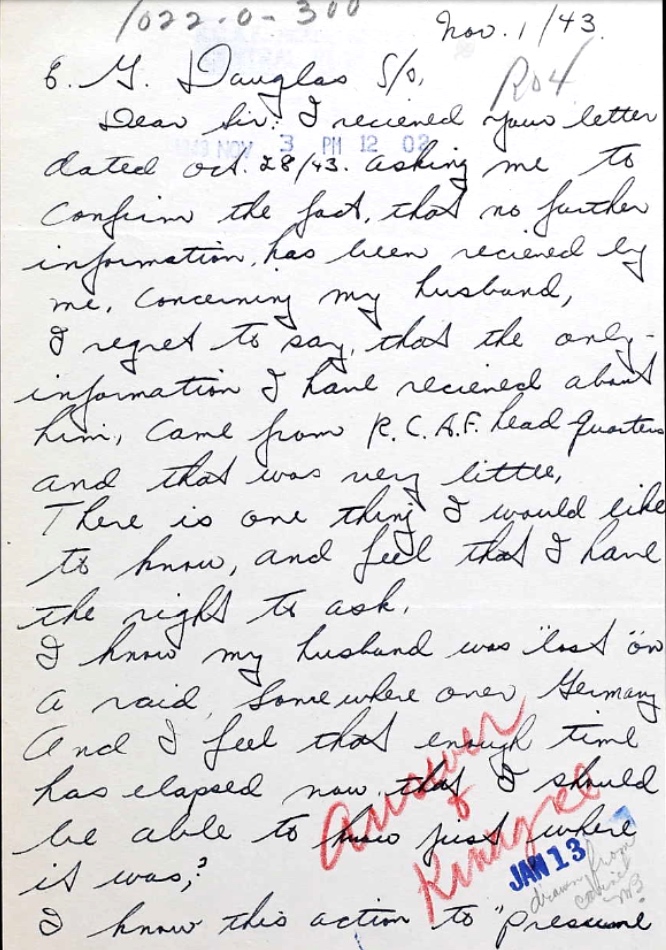 1022-0-300
Nov. 1/43.
E. G. Douglas S/O,
R04
Dear Sir: I recieved your letter
NOV 3 PM 12 02
dated Oct. 28/43. asking me to
Confirm the fact, that no further
information, has been recieved by
me, Concerning my husband,
I regret to say, that the only-
information I have recieved about
him, Came from R.C.A.F. head quarters
and that was very little,
There is one thing I would like
to know, and feel that I have
the right to ask,
I know my husband was "lost" on
a raid, Somewhere over Germany
And I feel that enough time
has elapsed now, that I should
be able to know just where
it was,?
Answer
JAN 13
drawn from
I know this action to "presume